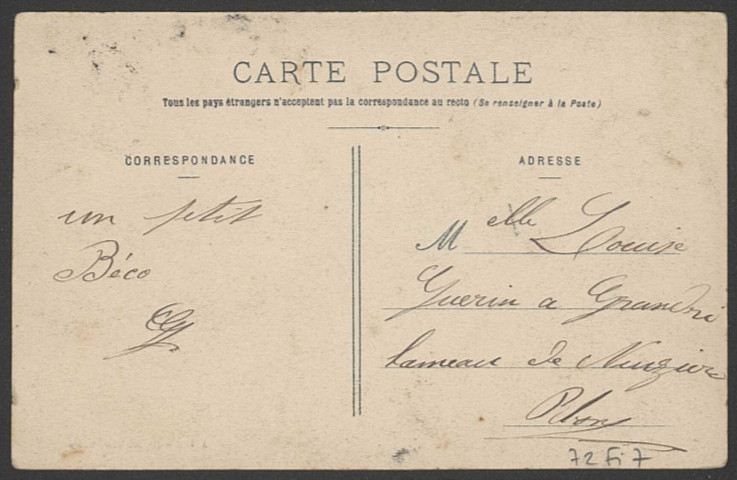 CARTE POSTALE
Tous les pays étrangers n'acceptent pas la correspondance au recto (Se renseigner à la Poste)
CORRESPONDANCE
un petit
Béco
ADRESSE
Melle Louise
Guerin a Grandri
hameau de
Rhone
72 Fi 7